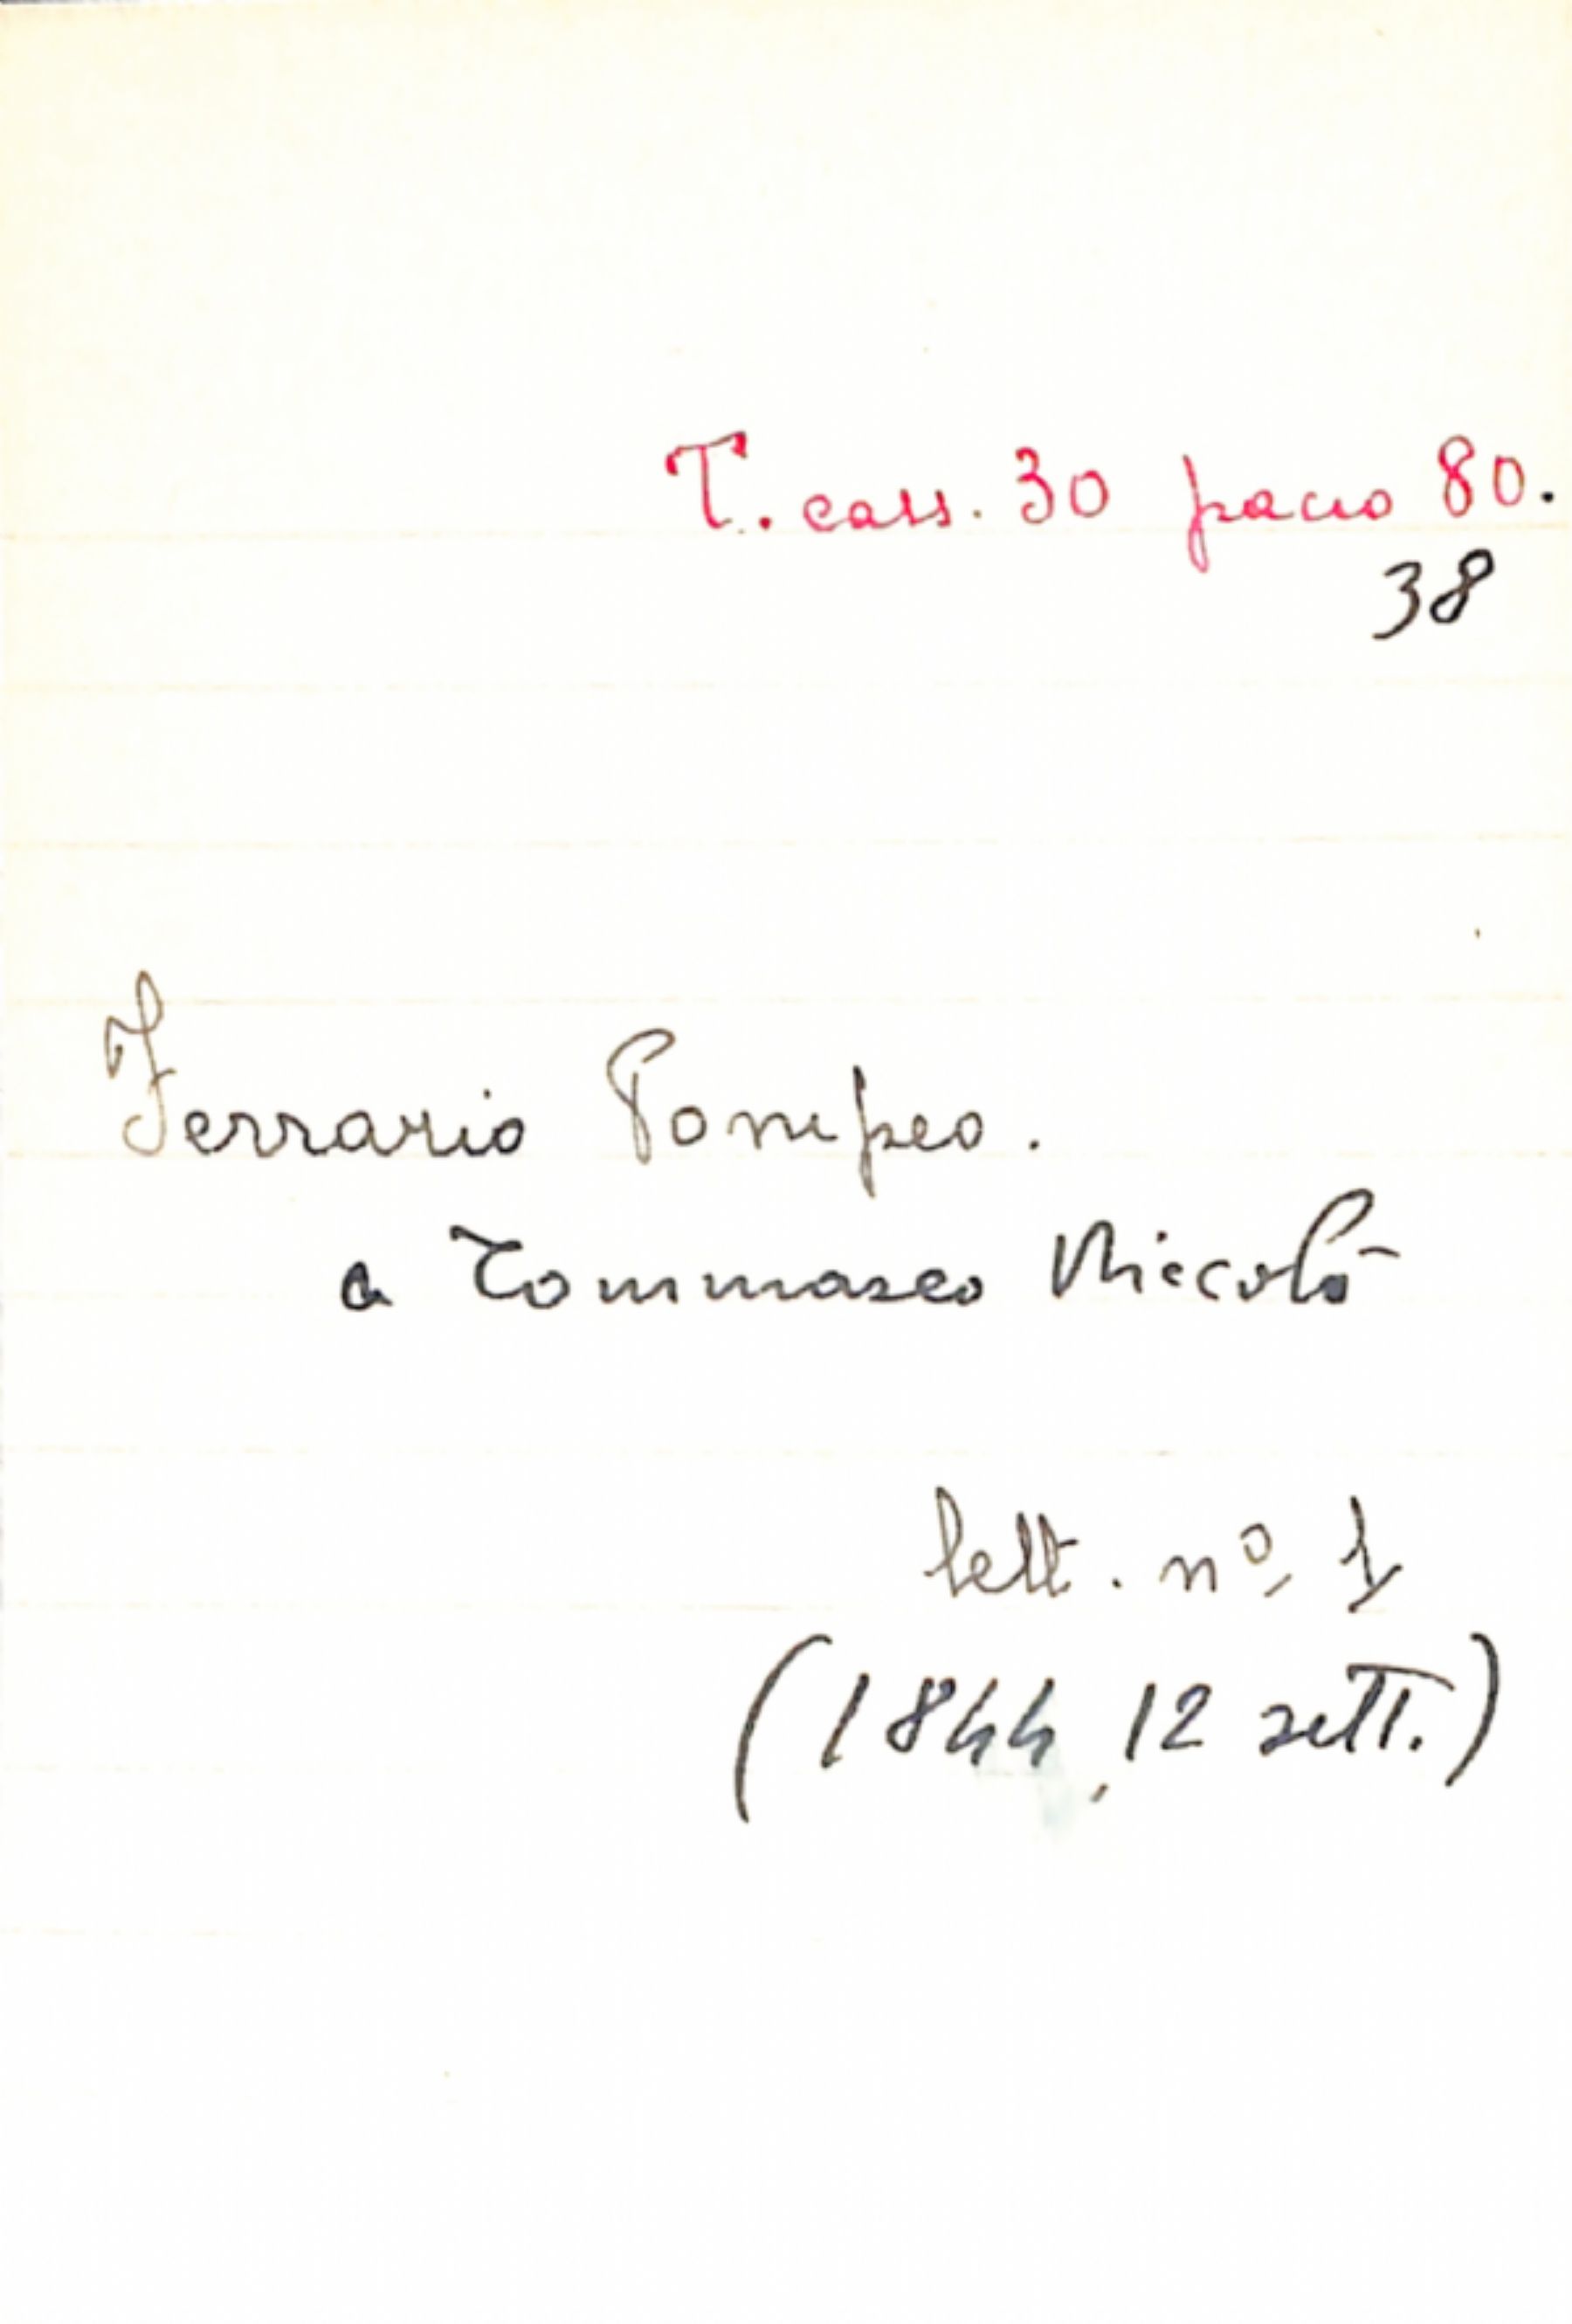 T. cass. 30 pacco 80.
38
Ferrario Pompeo.
a Tommaseo Niccolò
lett. nº 1
(1844, 12 sett.)